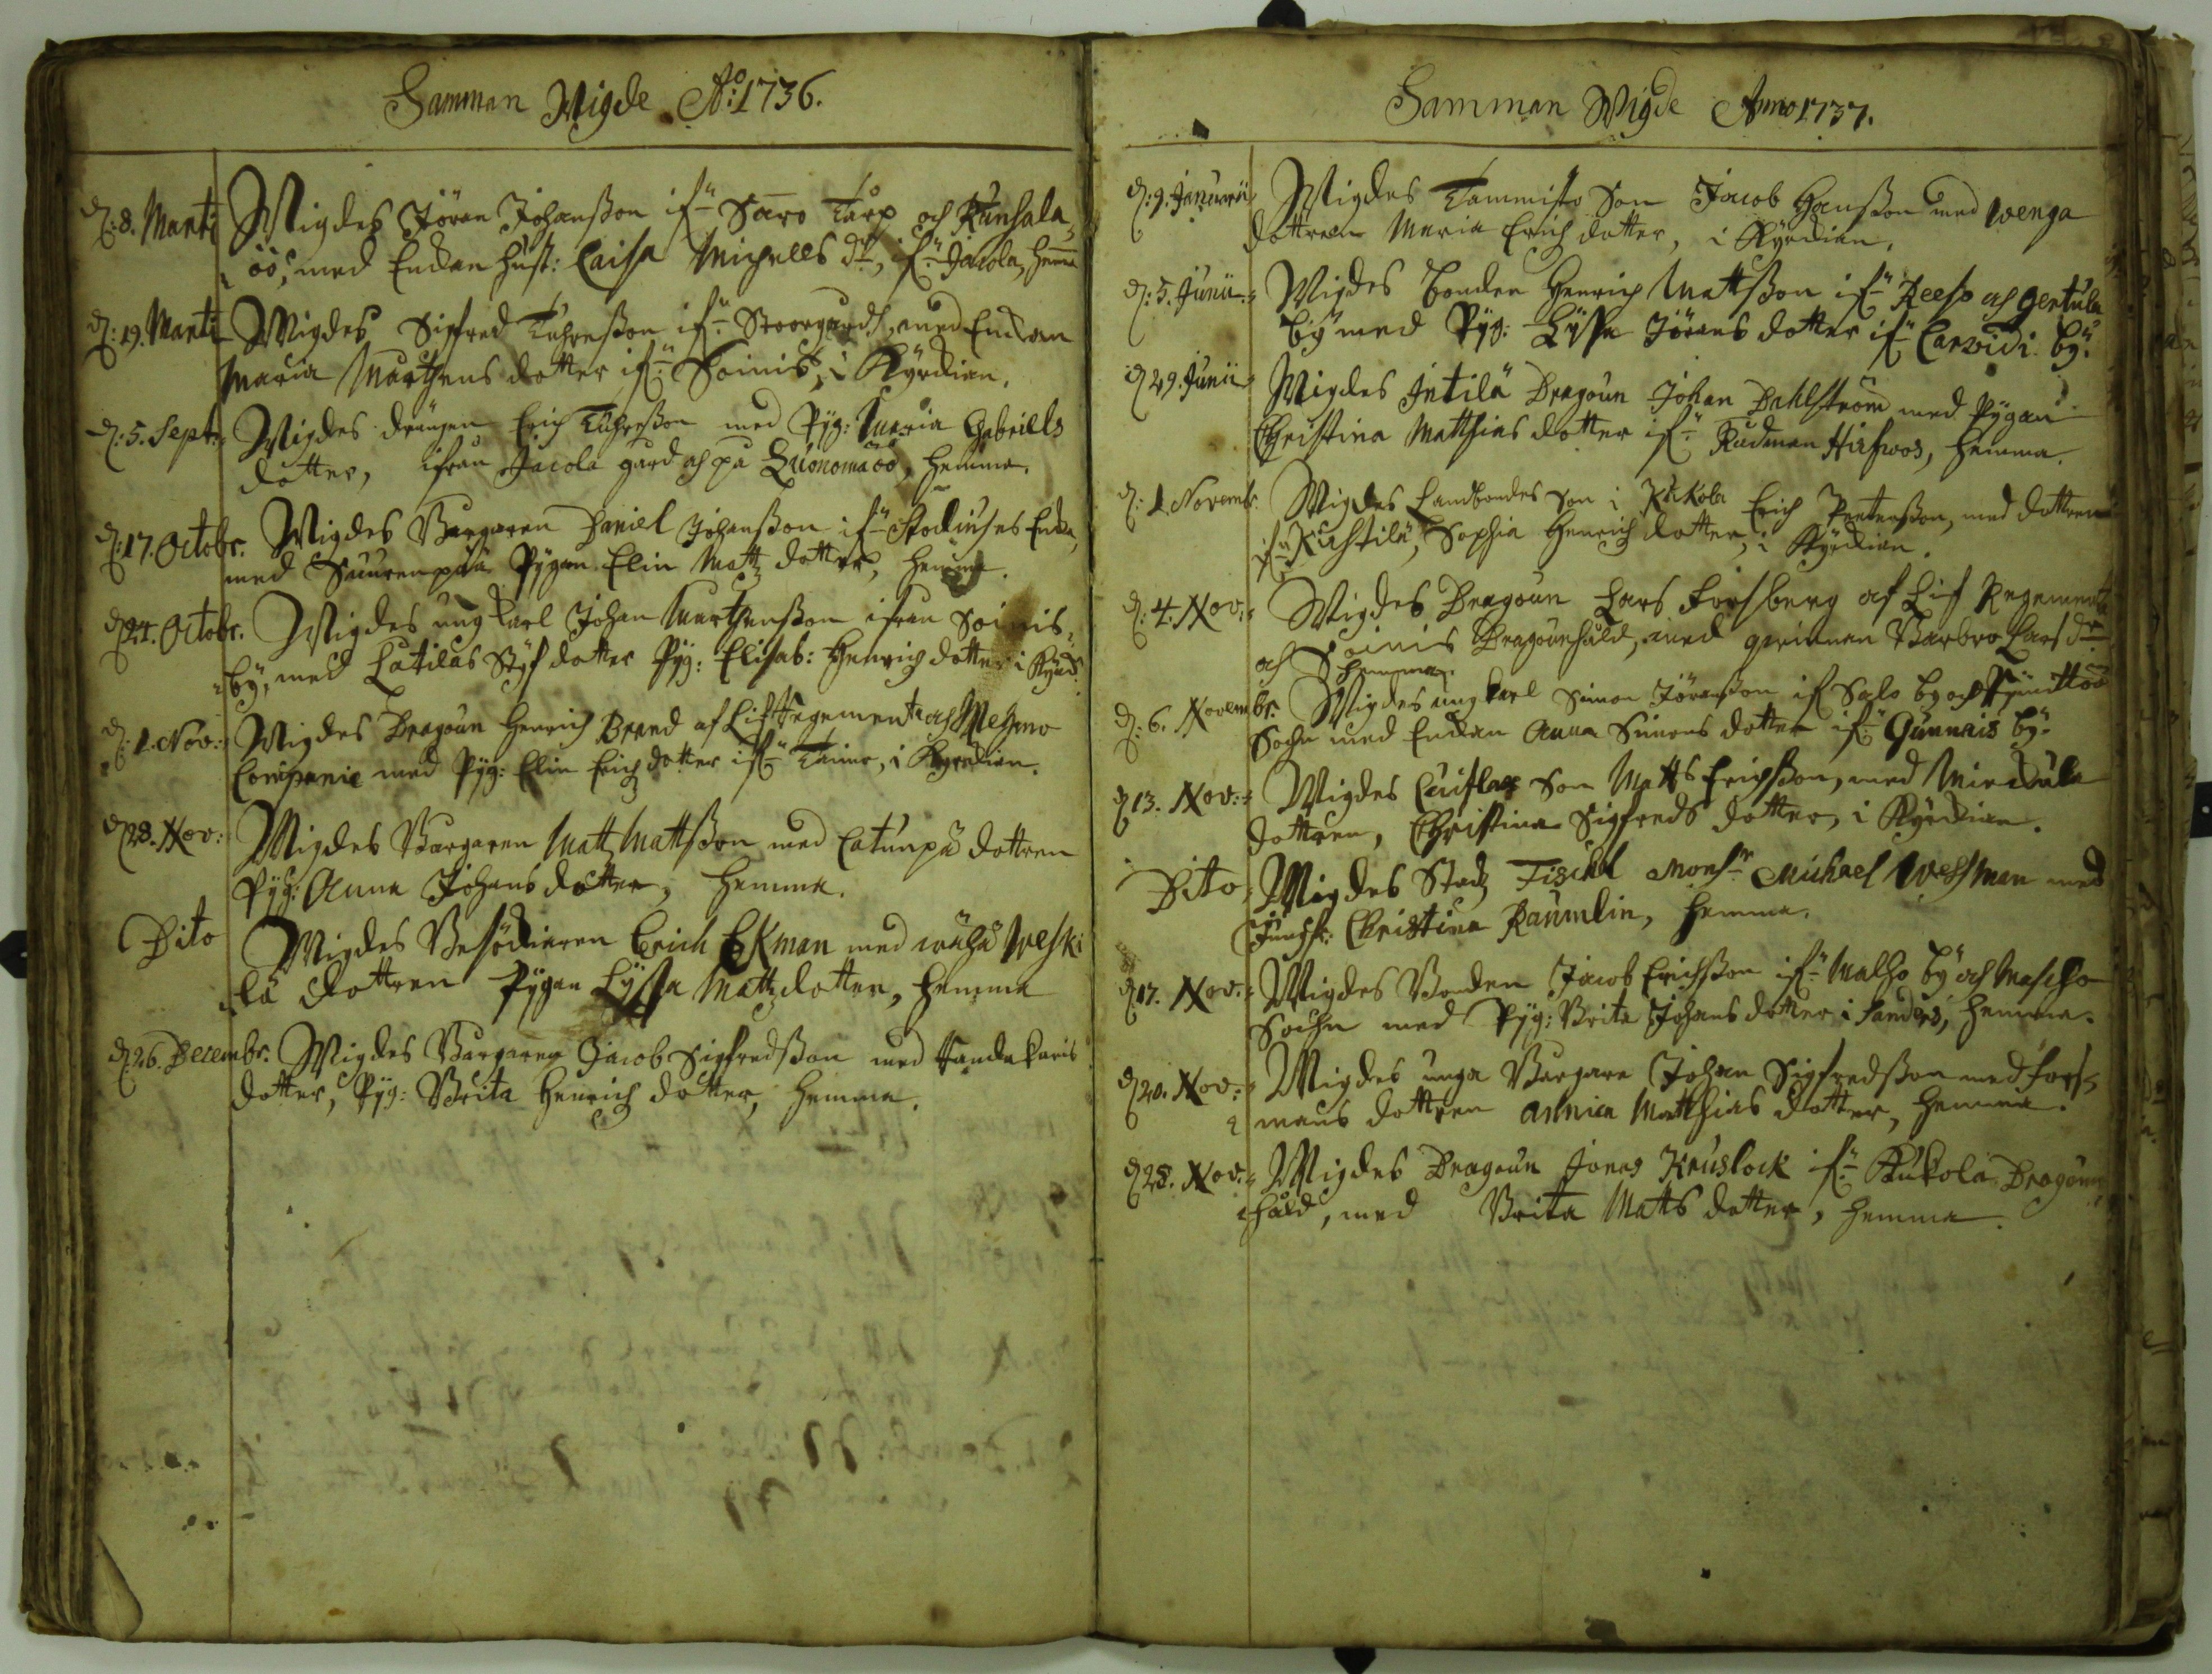 Samman Wigde Ao: 1736.
d: 8. Marti Wigdes Jöran Johansson ifn Saro Tårp och Runsala
öö, med Enckan hust: Caisa Michells dr, ifn Jacola, hemma
d: 19. Marti Wigdes Sigfred Tuhresson ifn Storgård, med Enckan
Maria Marthens dotter ifn Soinis, i Kyrckian.
d: 5. Sept: Wigdes drängen Erich Tuhresson med Pyg: Maria Gabriells
dotter, ifrån Jacola gård och på Luonomaöö, hemma.
d: 17. Octobr. Wigdes Borgaren Daniel Johansson ifn Stodiuses Encka,
med Suurenpää Pygan Elin Matz dotter, hemma.
d: 24. Octobr. Wigdes ung karl Johan Marthensson ifrån Soinis
by, med Latilas Styfdotter Pyg: Elisab: Henrich dotter i Kyrck:
d: 1. Nov: Wigdes Dragoun Henrich Brand af Lif Regemente och Mehmo
Compagnie med Pyg: Elin Erich dotter ifn Taimo, i Kyrckian.
d 28. Nov: Wigdes Borgaren Matz Mattsson med Catinpä dottren
Pyg: Anna Johans dotter, hemma.
Dito Wigdes Besökiaren Erich Ekman med wähä Weski
lä dottren Pygan Lyssa Matz dotter, hemma
d 26. Decembr. Wigdes Borgaren Jacob Sigfredsson med Handakaris
dotter, Pyg: Brita Henrich dotter, hemma.
Samman Wigde Anno 1737.
d: 9. Januarii Wigdes Tammisto Son Jacob Hansson med Wenga
dottren Maria Erich dotter, i Kyrckian.
d: 5. Junii Wigdes bonden Henrich Mattsson ifn Reeso och Gentula
by med Pyg: Lyssa Jörans dotter ifn Carwidi by.
d 29. Junii Wigdes Intilä Dragoun Johan Dahlström med Pygan
Christina Matthias dotter ifn Rudman Hirfwos, hemma.
d: 1. Novembr. Wigdes Landbondes Son i Kukola Erich Pettersson, med dottren
ifn Kustilä, Sophia Henrich dotter, i Kyrckian.
d: 4. Nov: Wigdes Dragoun Lars Forssberg af Lif Regemente
och Soinis Dragounhåld, med qwinnan Barbro Lars dr
hemma.
d: 6. Novembr. Wigdes ung karl Simon Jöransson if Salo by och Pemittoo
Sochn med Enckan Anna Simons dotter ifn Gunnais by.
d 13. Nov: Wigdes Cuislax Son Matts Erichsson, med Mieckula
dottren, Christina Sigfreds dotter, i Kyrckian.
Dito, Wigdes Stadz Fiskal Monsr Michael Westman med
Jungfr: Christina Baumlin, hemma.
d 17. Nov: Wigdes Bonden Jacob Erichsson ifn Malho by och Mascho
Sochn med Pyg: Brita Johans dotter i Sanders, hemma.
d 20. Nov: Wigdes unga Borgare Johan Sigfredsson med Fors
mans dottren Annica Matthias dotter, hemma.
d 28. Nov: Wigdes Dragoun Jonas Kruslock ifn Kukola Dragoun
håld, med Brita Matts dotter, hemma.